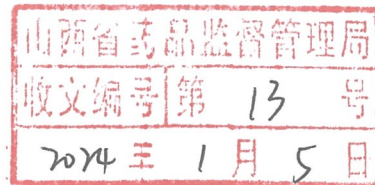 山西省药品监督管理局
收文编号 第 13 号
2024 年 1 月 5 日